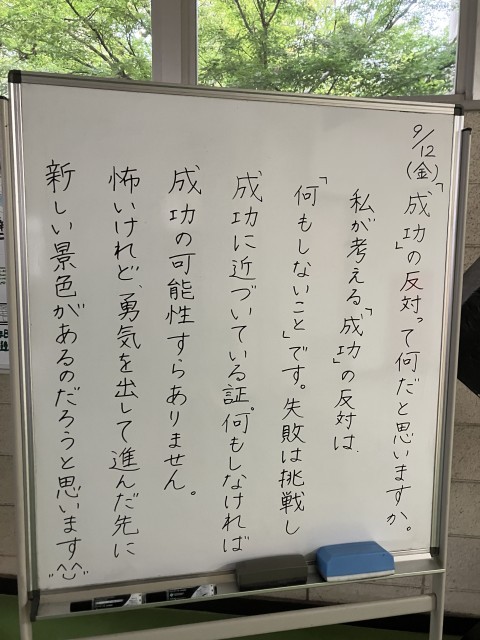 9/12(金)
「成功」の反対って何だと思いますか。
私が考える「成功」の反対は、
「何もしないこと」です。失敗は挑戦し
成功に近づいている証。何もしなければ
成功の可能性すらありません。
怖いけれど、勇気を出して進んだ先に
新しい景色があるのだろうと思います"^_^"